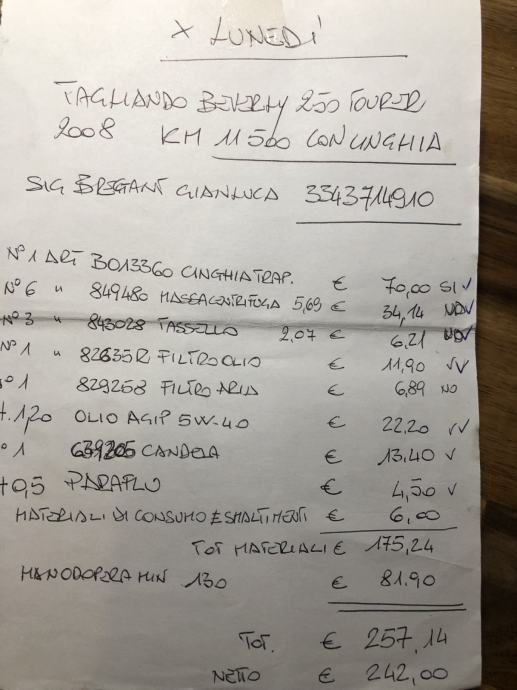 X LUNEDI'
TAGLIANDO BEVERLY 250 TOURER
2008 KM 11500 CON CINGHIA
SIG BREGANT GIANLUCA 3343714910
N° 1 ART B013360 CINGHIA TRAP. € 70,00 SI ✓
N° 6 " 849480 MASSACENTRIFUGA 5,69 € 34,14 ✓
N° 3 " 843028 TASSELLO 2,07 € 6,21 ✓
N° 1 " 82635R FILTRO OLIO € 11,90 ✓✓
° 1 829258 FILTRO ARIA € 6,89 NO
t. 1,20 OLIO AGIP 5W-40 € 22,20 ✓✓
° 1 CANDELA € 13,40 ✓
t 0,5 PARAFLU € 4,50 ✓
MATERIALI DI CONSUMO E SMALTIMENTI € 6,00
TOT MATERIALI € 175,24
MANODOPERA MIN 130 € 81.90
TOT. € 257,14
NETTO € 242,00